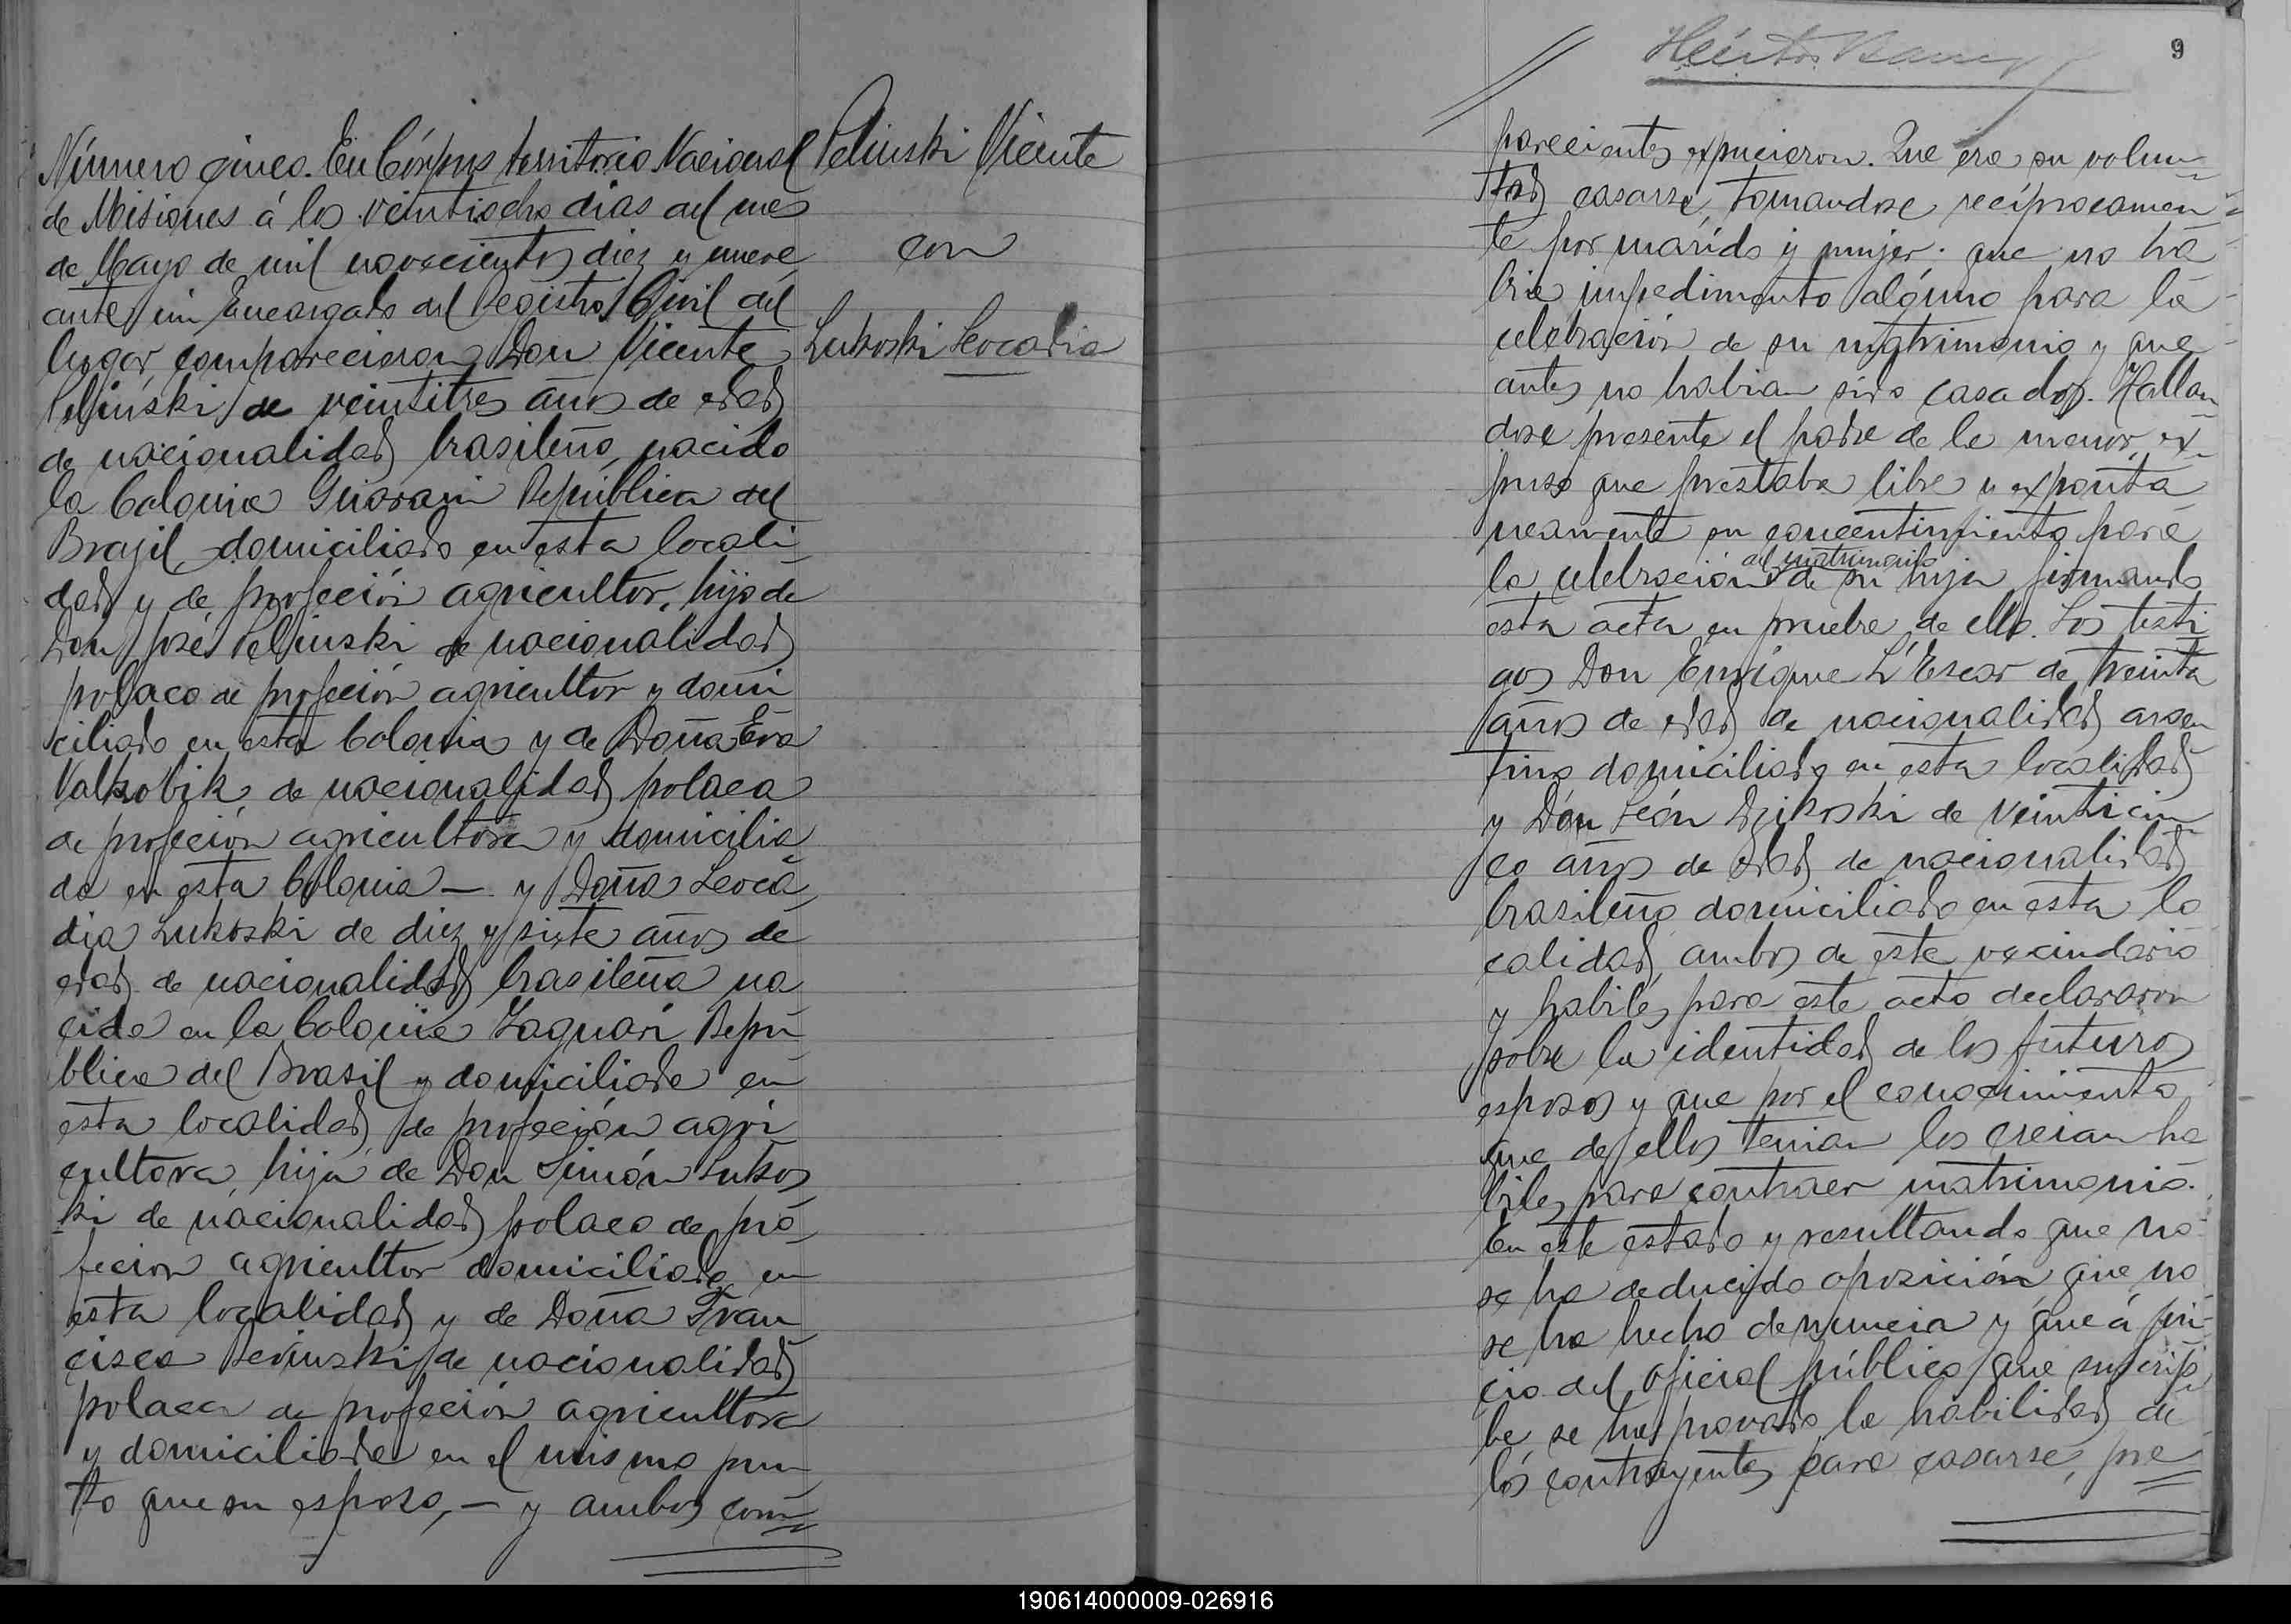 Número cinco. En Córpus territorio Nacional
de Misiones á los veintiocho dias del mes
de Mayo de mil novecientos diez y nueve
ante mi Encargado del Registro Civil del
lugar, comparecieron Don Vicente
Pelinski de veintitres años de edad
de nacionalidad brasileño, nacido
la Colonia Guarani República del
Brazil, domiciliado en esta locali
dad y de profeción agricultor, hijo de
Don José Pelinski de nacionalidad
polaco de profeción agricultor y domi
ciliado en esta Colonia y de Doña Eva
Valkobik, de nacionalidad polaca
de profeción agricultora y domicilia
da en esta Colonia — y Doña Leoca
dia Lukoski de diez y siete años de
edad de nacionalidad brasileña na
cida en la Colonia Yaguari Repú
blica del Brasil y domiciliada en
esta localidad, de profeción agri
cultora, hija de Don Simón Lukos
ki de nacionalidad polaco de pro
feción agricultor domiciliado en
esta localidad y de Doña Fran
cisca de nacionalidad
polaca de profeción agricultora
y domiciliada en el mismo pun
to que su esposo, — y ambos com
Pelinski Vicente
con
Lukoski Leocadia
9
parecientes expucieron. Que era su volun
tad casarse, tomandose recíprocamen
te por marido y mujer. que no ha
bia impedimento alguno para la
celebración de su matrimonio y que
antes no habian sido casados. Hallan
dose presente el padre de la menor, ex
puso que prestaba libre y exponta
neamente su concentimiento para
del matrimonio
la celebración de su hija firmando
esta acta en prueba de ello. Los testi
gos Don Enrique L'Escar de treinta
años de edad de nacionalidad argen
tino domiciliado en esta localidad
y Don León Dzikoski de veinticin
co años de edad de nacionalidad
brasileño domiciliado en esta lo
calidad, ambos de este vecindario
y habiles para este acto declararon
sobre la identidad de los futuros
esposos y que por el conocimiento
que de ellos tenian los creian ha
biles para contraer matrimonio.
En este estado y resultando que no
se ha deducido oposición, que no
se ha hecho denuncia y que á jui
cio del oficial público que suscri
be, se ha provado la habilidad de
los contrayentes para casarse, pre
190614000009-026916